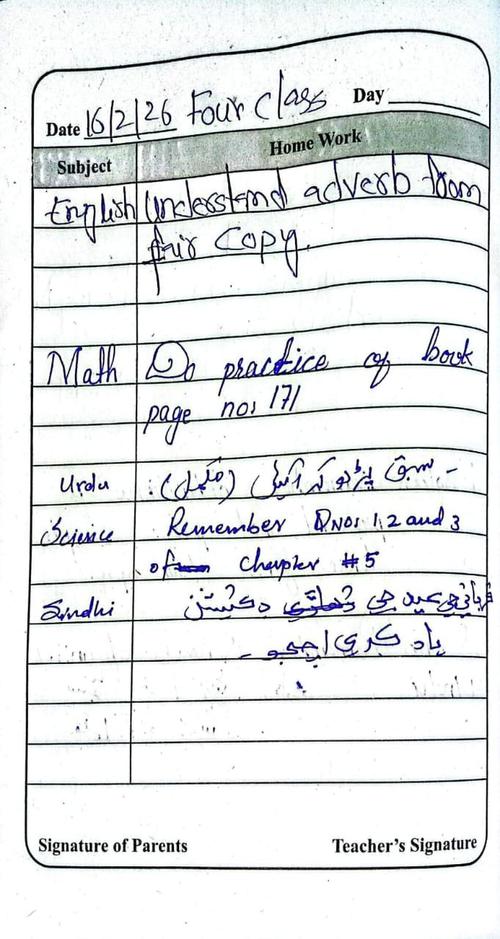 Date 16/2/26 Four Class Day
Subject Home Work
English Understand adverb from
fair Copy.
Math Do practice of book
page no: 171
Urdu سبق پڑھ کر آئیں
Science Remember Q Nos 1, 2 and 3
of chapter #5
Sindhi قرباني جي عيد جي ڊڪشنن
ياد ڪري اچجو
Signature of Parents Teacher's Signature